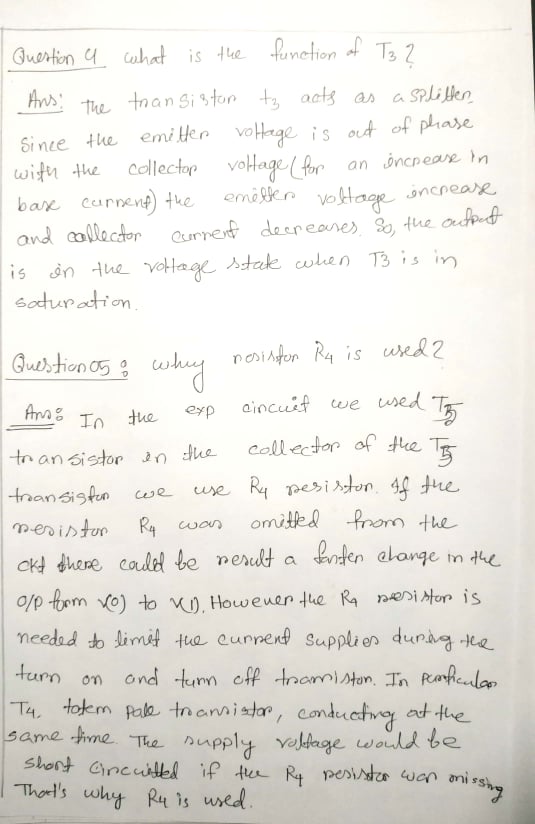 Question 4 what is the function of T3?
Ans: The transistor t3 acts as a splitter.
Since the emitter voltage is out of phase
with the collector voltage (for an increase in
base current) the emitter voltage increase
and collector current decreases. So, the output
is in the voltage state when T3 is in
saturation.
Question 05: why resistor R4 is used?
Ans: In the exp circuit we used
transistor in the collector of the
transistor we use R4 resistor. If the
resistor R4 was omitted from the
ckt there could be result a faster change in the
o/p form v(0) to v(1). However the R4 resistor is
needed to limit the current supplies during the
turn on and turn off transistor. In particular
T4, totem pole transistor, conducting at the
same time. The supply voltage would be
short circuitted if the R4 resistor was missing
That's why R4 is used.